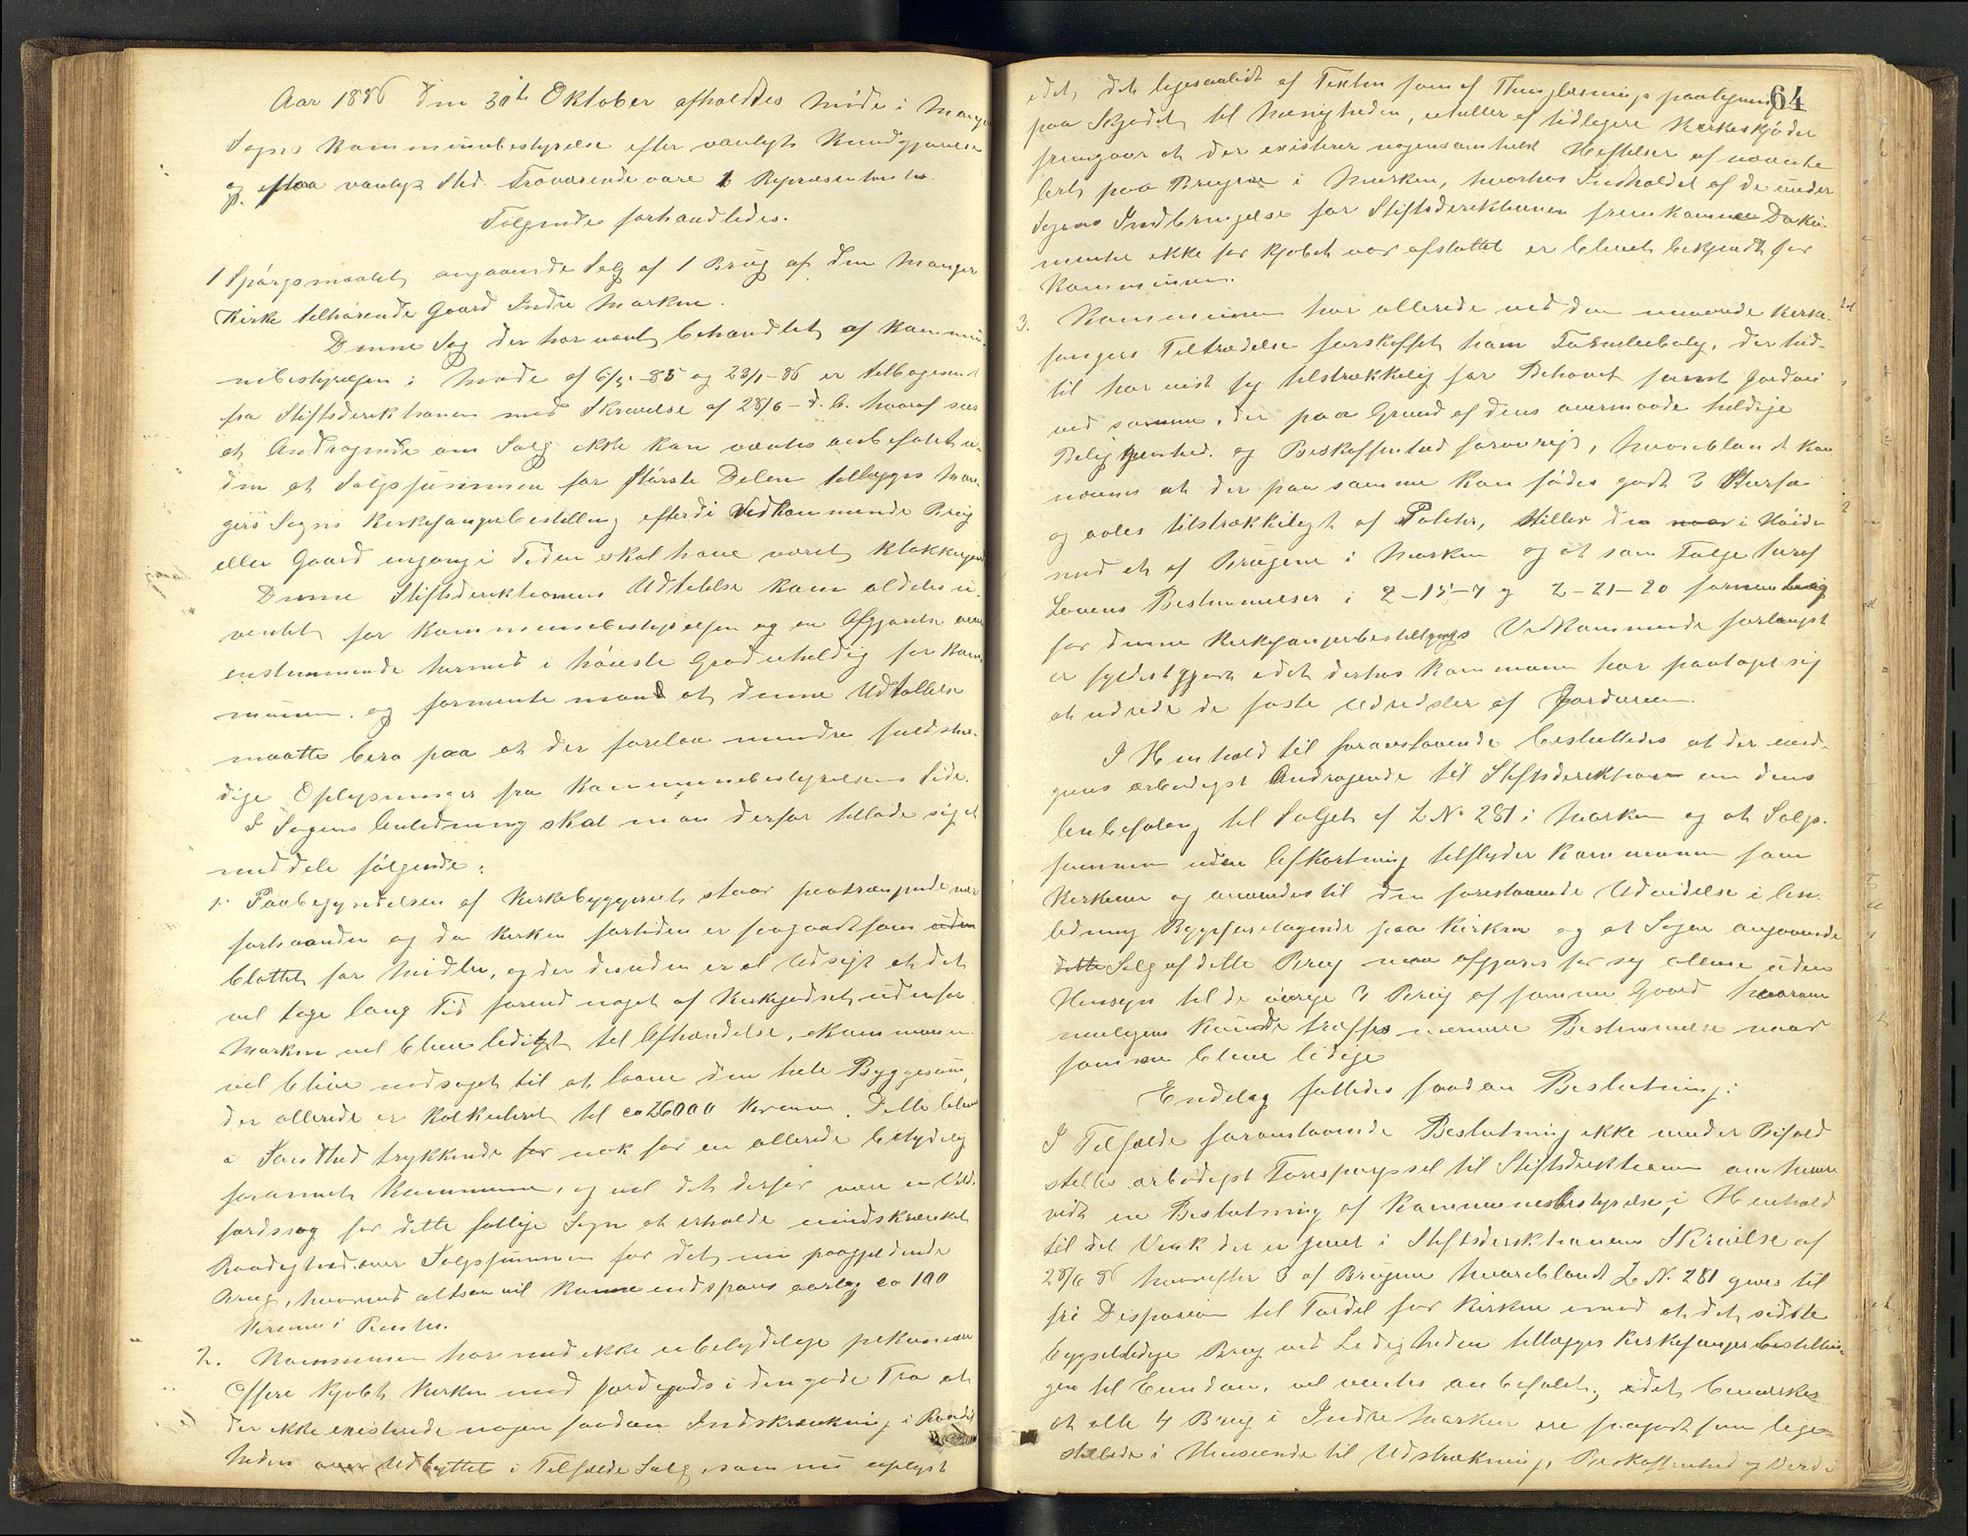 Aar 1886 den 30te Oktober afholdtes Møde i Manger
Sogns Kommunebestyrelse efter vanligt Kundgjørelse
og paa vanligt Sted. Fraværende vare 1 Repræsentanter.
Følgende forhandledes.
1 Spørgsmaalet angaaende Salg af 1 Brug af den Manger
Kirke tilhørende Gaard Indre Marken.
Denne Sag der har været behandlet af Kommu-
nebestyrelsen i Møde af 6/5-85 og 23/1-86 er tilbagesendt
fra Stiftsdirektionen med Skrivelse af 28/6 - d. A. hvoraf sees
at Andragende om Salg ikke kan ventes anbefalet u-
den at Salgssummen for største Delen tillægges Man-
gers Sogns Kirkesangerbestilling efterdi Vedkommende Brug
eller Gaard engang i Tiden skal have været Klokkergaard
Denne Stiftsdirektionens Udtalelse kom aldeles u-
ventet for Kommunebestyrelsen og en Afgjørelse over
ensstemmende hermed i høieste Grad uheldig for Kom-
munen. og formente man at denne Udtalelse
maatte bero paa at der forelaa mindre fuldstæn-
dige Oplysninger fra Kommunebestyrelsens Side.
I Sagens Anledning skal man derfor tillade sig at
meddele følgende:
1. Paabegyndelsen af Kirkebyggeriet staar paatrængende nær
forhaanden og da Kirken fortiden er saagodtsom uden
blottet for Midler, og der desuden er al Udsigt at det
vil tage lang Tid forend noget af Kirkegodset udenfor
Marken vil blive ledigt til Afhændelse, Kommunen
vil blive nødsaget til at laane den hele Byggesum,
der allerede er kalkuleret til ca 26000 Kroner. Dette blev
i Sandhed trykkende for nok for en allerede betydelig
forarmet Kommune, og vil det derfor være en Vel-
færdssag for dette fattige Sogn at erholde uindskrænket
Raadighed over Salgssummen for det nu paagjældende
Brug, hvorved altsaa vil kunne indspares aarlig ca 100
Kroner i Renter.
2. Kommunen har med ikke ubetydelige pekuniære
Offere kjøbt Kirken med Jordegods i den gode Tro at
der ikke existerede nogen saadan Indskrænkning i Raadig
heden over Udbyttet i Tilfælde Salg, som nu oplyst
64
idet, det ligesaalidt af Texten som af Thinglæsnings paategning
paa Skjødet til Menigheden, eller af tidligere Kirkeskjøder
fremgaar at der existerer nogensomhelst Heftelser af nævnte
Art paa Brugene i Marken, hvorhos Indholdet af de under
Sagens Indbringelse for Stiftsdirektionen fremkomne Doku-
menter ikke før Kjøbet var afsluttet er blevet bekjendt for
Kommunen.
3. Kommunen har allerede ved den nuværende Kirke-
sangers Tiltrædelse forskaffet ham Familiebolig, der hid-
til har vist sig tilstrækkelig for Behovet samt Jordvei
ved samme, der paa Grund af dens overmaade heldige
Beliggenhed og Beskaffenhed forøvrigt, hvoriblandt kan
nævnes at der paa samme kan fødes godt 3 Storfæ
og avles tilstrækkeligt af Poteter, stiller den i Høide
med et af Brugene i Marken og at som Følge heraf
Lovens Bestemmelser i 2-15-7 og 2-21-20 formentlig
for denne Kirkesangerbestillings Vedkommende forlængst
er fyldestgjort idet derhos Kommunen har paataget sig
at udrede de faste Udredsler af Jordveien.
I Henhold til foranstaaende besluttedes at der ind-
gives ærbødigst Andragende til Stiftsdirektionen om dens
Anbefaling til Salget af L No 281 i Marken og at Salgs-
summen uden Afkortning tilflyder Kommunen som
Kirkeeier og anvendes til den forestaaende Udvidelse i An-
ledning Byggeforetagende paa Kirken og at Sagen angaaende
dette Salg af dette Brug maa afgjøres for sig alene uden
Hensyn til de øvrige 3 Brug af samme Gaard hvorom
muligens kunde træffes nærmere Bestemmelse naar
samme blive ledige
Endelig fattedes saadan Beslutning:
I Tilfælde foranstaaende Beslutning ikke vinder Bifald
stilles ærbødigst Forespørgsel til Stiftsdirektionen om hvor
vidt en Beslutning af Kommunebestyrelsen, i Henhold
til det Vink der er givet i Stiftsdirektionens Skrivelse af
28/6 86 hvorefter 3 af Brugene hvoriblandt L. N. 281 gives til
fri Disposion til Fordel for Kirken imod at det sidste
bygselledige Brug ved Ledigheden tillægges Kirkesangerbestillin-
gen til Eiendom, vil ventes anbefalet; idet bemærkes
at alle 4 Brug i Indre Marken ere saagodt som lige-
stillede i Henseende til Udstrækning, Beskaffenhed og Værdi